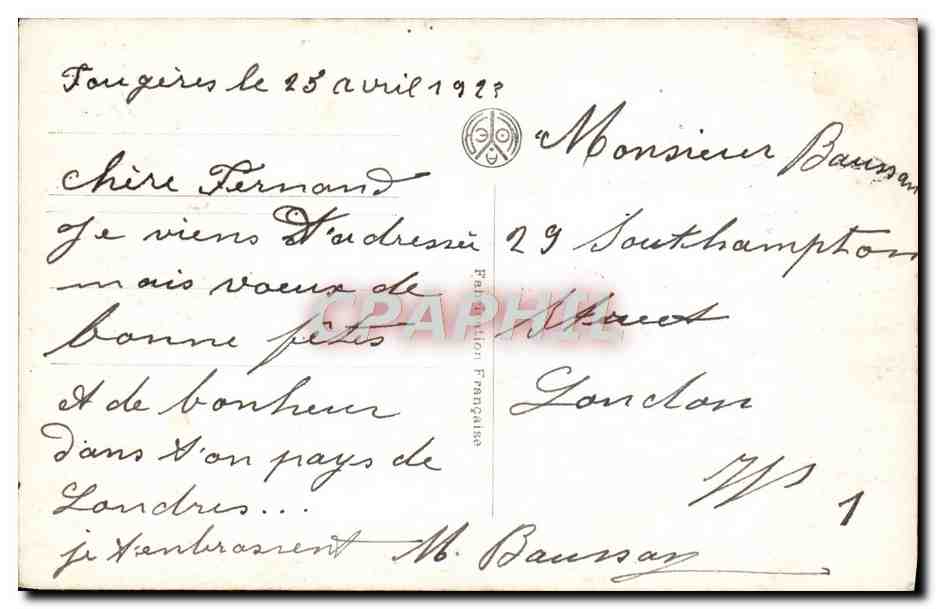 Fougères le 25 avril 1923
chère Fernand
je viens t'adressée
mais voeux de
bonne fêtes
et de bonheur
dans t'on pays de
Londres...
je t'enbrassent M. Baussan
Fabrication Française
Monsieur Baussan
29 Southampton
Street
London
W 1
CPAPHIL